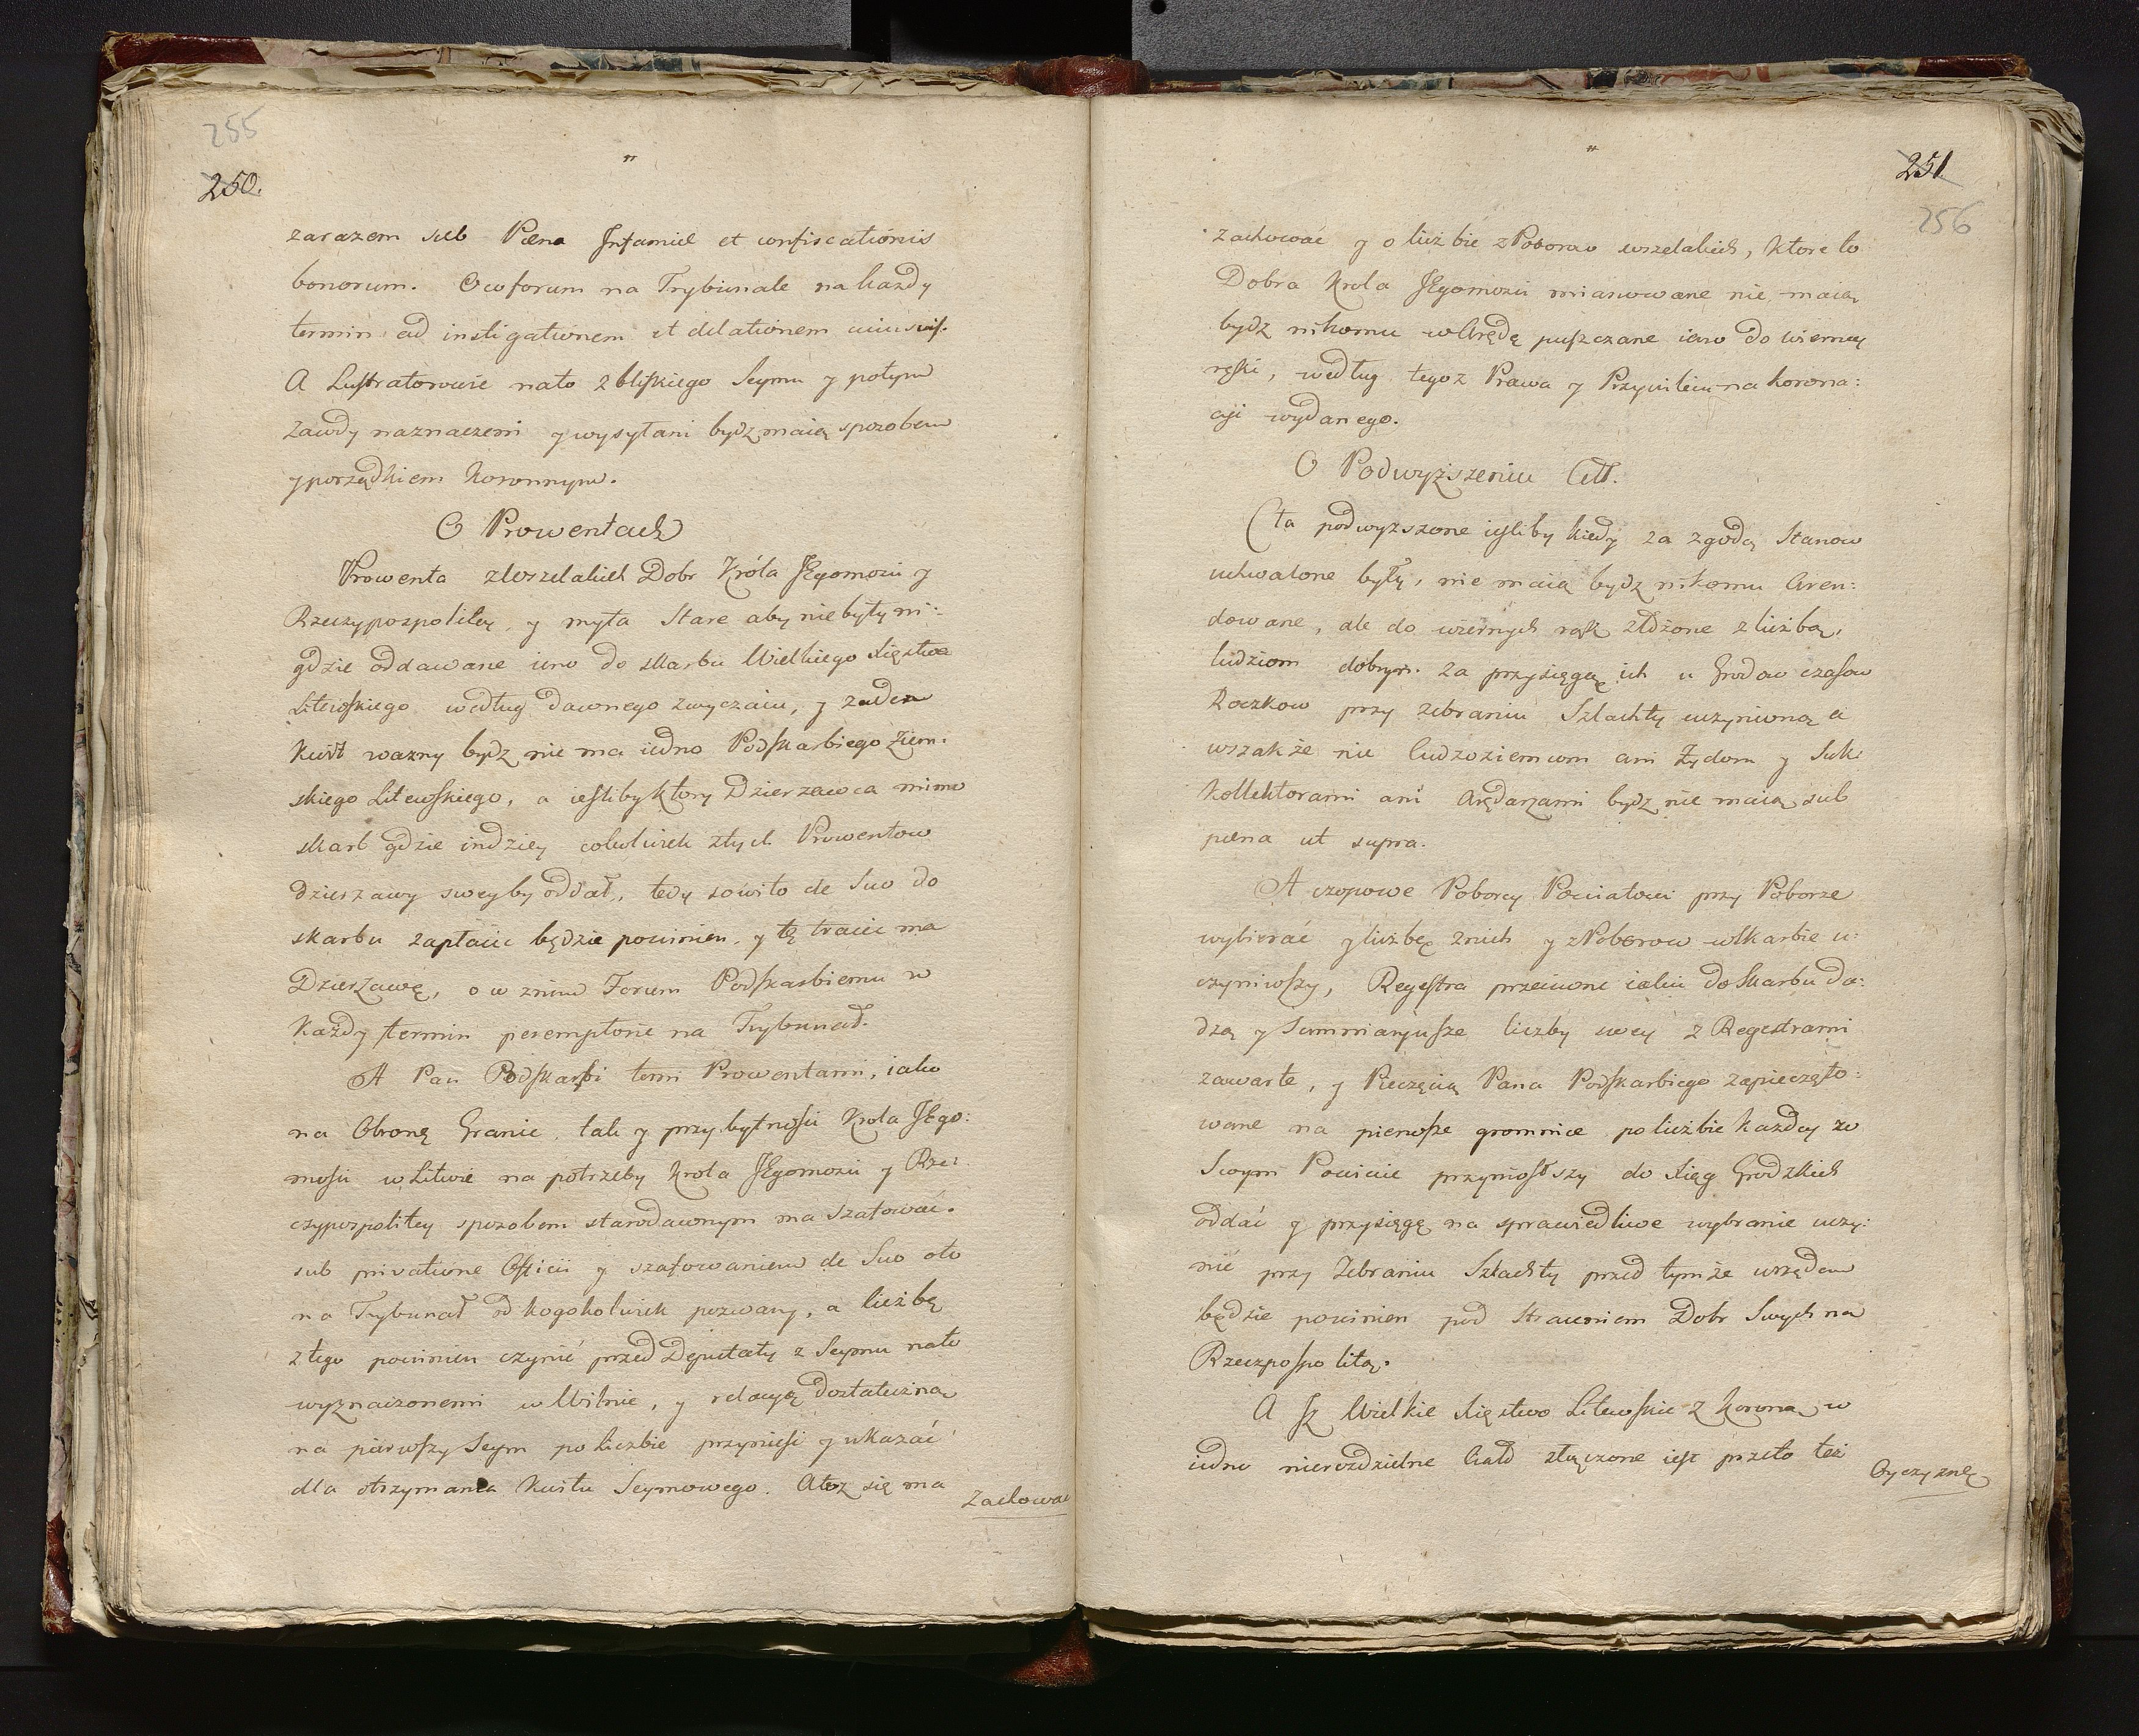 255
250.
"
zarazem sub Pæna Infamiæ et confiscationis
bonorum. O co forum na Trybunale na każdy
termin ad instigationem et delationem cuiusvis.
A Lustratorowie nato z bliskiego Seymu y potym
zawdy naznaczeni y wysyłani bydz maią sposobem
y porządkiem Koronnym.
O Prowentach
Prowenta z Wszelakich Dobr Króla JEgomości y
Rzeczypospolitey, y myta Stare aby nie były ni-
gdzie oddawane ieno do skarbu Wielkiego Xięstwa
Litewskiego według dawnego zwyczaiu, y żaden
Kwit ważny bydz nie ma iedno Podskarbiego Ziem-
skiego Litewskiego, a iesliby ktory Dzierzawca mimo
skarb gdzie indziey cokolwiek z tych Prowentow
dzierzawy swey by oddał, tedy sowito de Suo do
skarbu zapłacic będzie powinien, y tę tracic ma
Dzierzawę, o co z nim Forum Podskarbiemu w
Każdy termin peremptorie na Trybunał.
A Pan Podskarbi temi Prowentami, iako
na Obronę Granic, tak y przy bytności Krola JEgo:
mości w Litwie na potrzeby Krola JEgomości y Rze:
czypospolitey sposobem starodawnym ma Szafować.
sub privatione Officii y szafowaniem de Suo o to
na Trybunał od kogokolwiek pozwany, a liczbę
z tego powinien czynić przed Deputaty z Seymu na to
wyznaczonemi w Wilnie, y relacyą dostateczną
na pierwszy Seym po liczbie przynieść y ukazać
dla otrzymania Kwitu Seymowego. A toż się ma
Zachować
"
251
256
zachować y o liczbie z Poborow wszelakich, Ktore to
Dobra Krola JEgomości mianowane nie maią
bydz nikomu w Arędę puszczane ieno do wierney
ręki, według tegoz Prawa y Przywileiu na korona:
cyi wydanego.
O Podwyższeniu Cell.
Cła podwyzszone iesliby kiedy za zgodą Stanow
uchwalone były, nie maią bydz nikomu Aren:
dowane, ale do wiernych rąk złożone z liczbą,
ludziom dobrym za przysięgą ich u Grodow czasow
Roczkow przy zebraniu Szlachty uczynioną a
wszakże nie Cudzoziemcom ani Żydom y Sub:
Kollektorami ani Arędarzami bydz nie maią sub
pæna ut supra.
A czopowe Poborcy Powiatowi przy Poborze
wybierać y liczbę z nich y z Poborow w skarbie u:
czyniwszy, Regestra przeciwne iakie do Skarbu da:
dzą y Summaryusze liczby swey z Regestrami
zawarte, y Pieczęcią Pana Podskarbiego zapieczęto:
wane na pierwsze gromnice po liczbie każdey w
Swym Powiecie przyniosłszy do Xięg Grodzkich
oddać y przysięgę na sprawiedliwe wybranie uczy:
nić przy Zebraniu Szlachty przed tymże urzędem
będzie powinien pod straceniem Dobr Swych na
Rzeczpospolitą.
A Iż Wielkie Xięstwo Litewskie z Koroną w
iedno nierozdzielne Ciało złączone iest przeto też
Oyczyznę